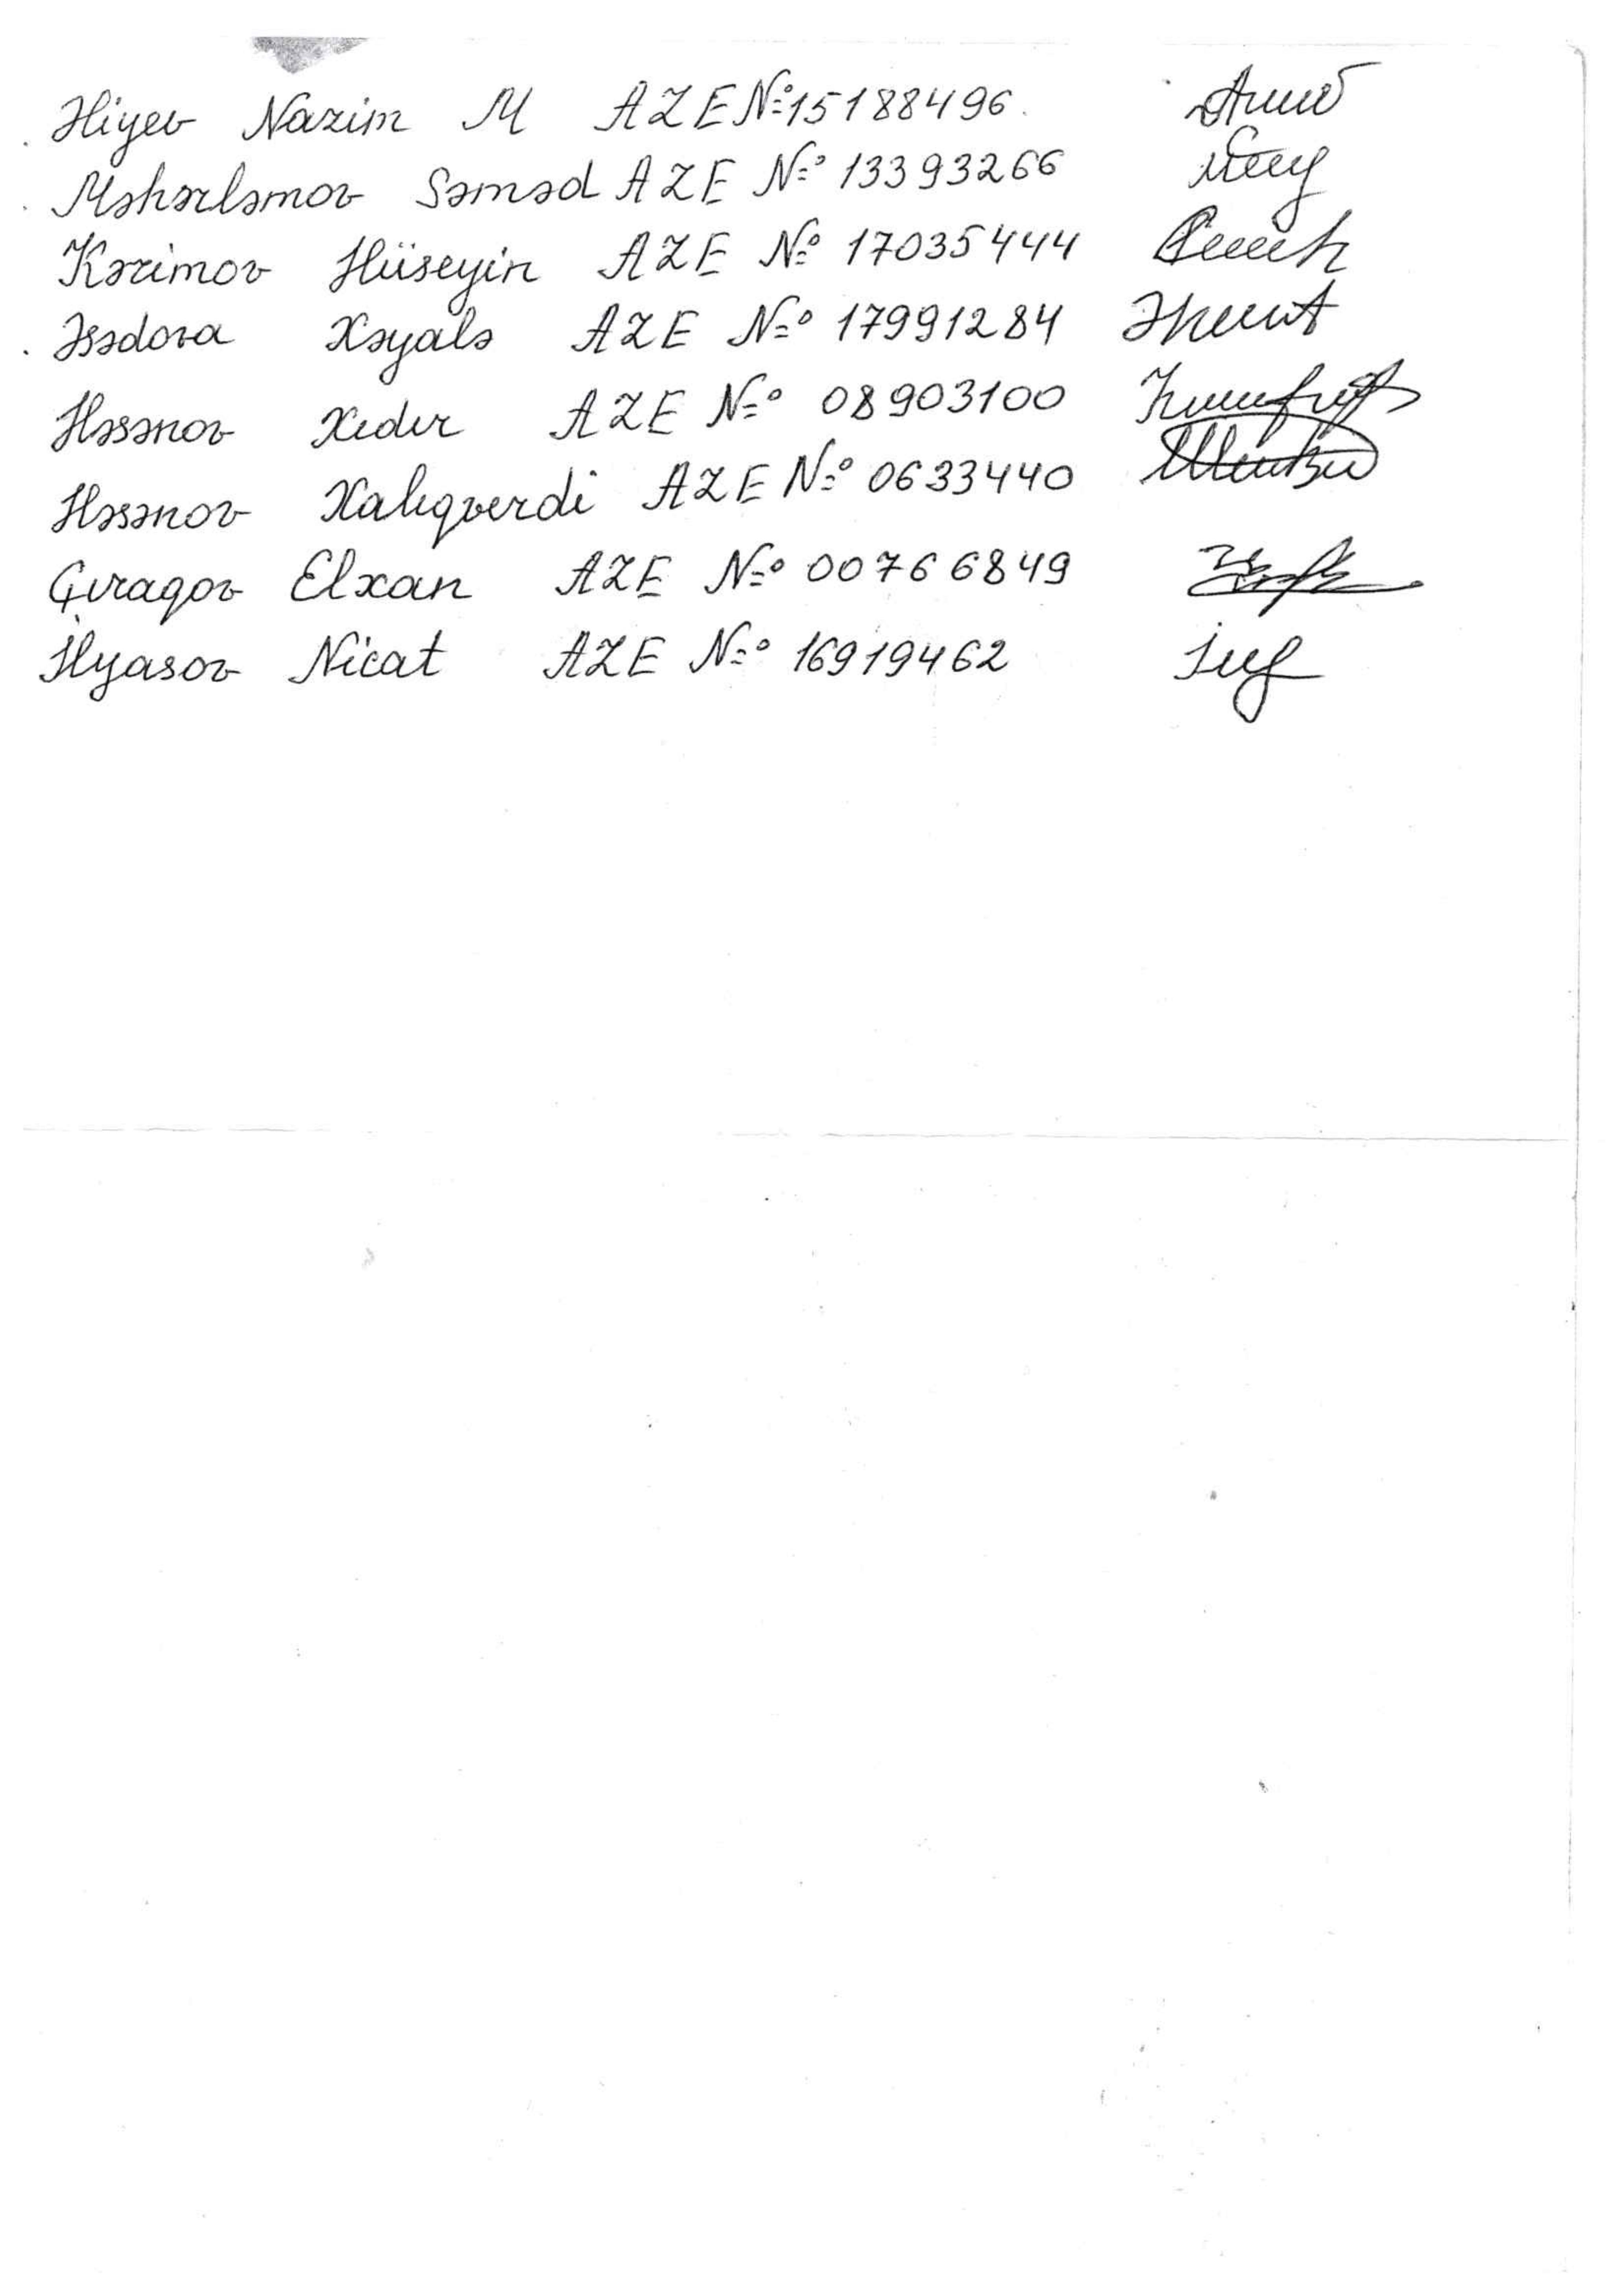 Əliyev Nazim M AZE №15188496.
Məhərləmov Səməd AZE № 13393266
Kərimov Hüseyin AZE № 17035444
Əsədova Xəyalə AZE № 17991284
Həsənov Xıdır AZE № 08903100
Həsənov Xalıqverdi AZE № 0633440
Çıraqov Elxan AZE № 00766849
İlyasov Nicat AZE № 16919462